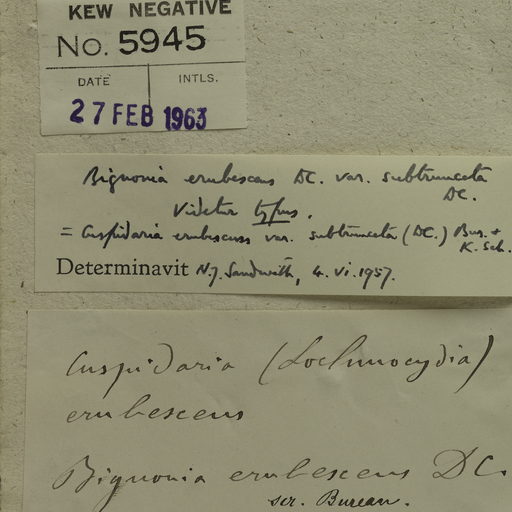 KEW NEGATIVE
No. 5945
DATE INTLS.
27 FEB 1963
Bignonia erubescens DC. var. subtruncata
DC.
Videtur typus.
= Cuspidaria erubescens var. subtruncata (DC.) Bur. +
K. Sch.
Determinavit N.Y. Sandwith, 4.vi.1957.
Cuspidaria (Lochmocydia)
erubescens
Bignonia erubescens DC.
scr. Bureau.